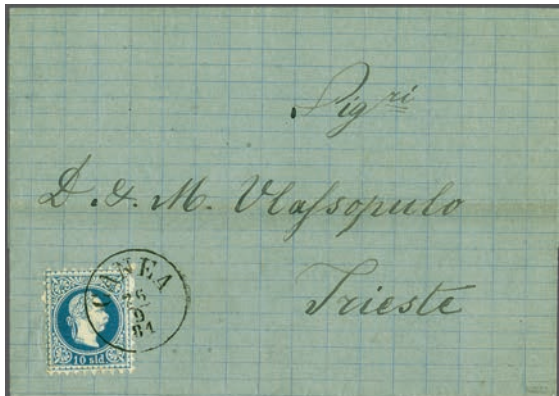 Sig^ri
D. & M. Vlassopulo
Trieste
CANEA
25
9
81
10 sld